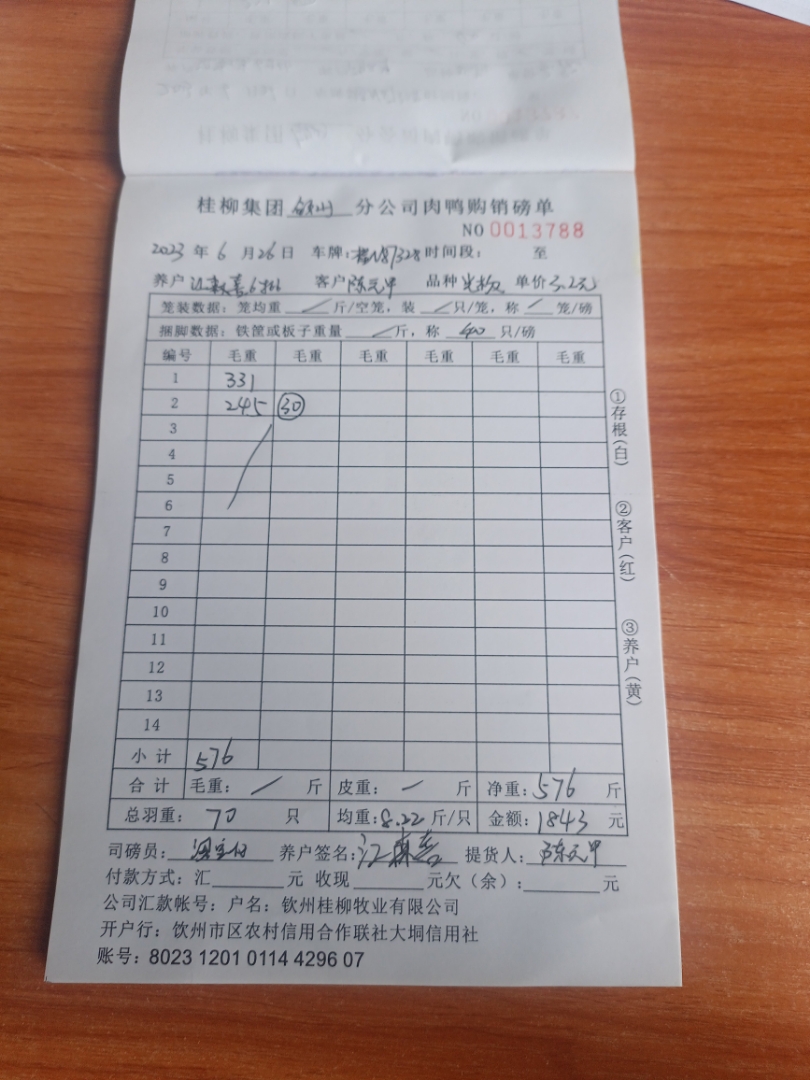 桂柳集团 钦州 分公司肉鸭购销磅单
NO 0013788
2023 年 6 月 26 日 车牌: 桂N87328 时间段: 至
养户 江森喜6批 客户 陈元甲 品种 单价 3.2元
笼装数据: 笼均重 / 斤/空笼, 装 / 只/笼, 称 / 笼/磅
捆脚数据: 铁筐或板子重量 / 斤, 称 40 只/磅
编号 毛重 毛重 毛重 毛重 毛重 毛重
1 331
2 245 30
3
4
5
6
7
8
9
10
11
12
13
14
小计 576
合计 毛重: / 斤 皮重: / 斤 净重: 576 斤
总羽重: 70 只 均重: 8.22 斤/只 金额: 1843 元
司磅员: 养户签名: 江森喜 提货人: 陈元甲
付款方式: 汇 元 收现 元欠(余): 元
公司汇款帐号: 户名: 钦州桂柳牧业有限公司
开户行: 饮州市区农村信用合作联社大垌信用社
账号: 8023 1201 0114 4296 07
①存根(白)
②客户(红)
③养户(黄)